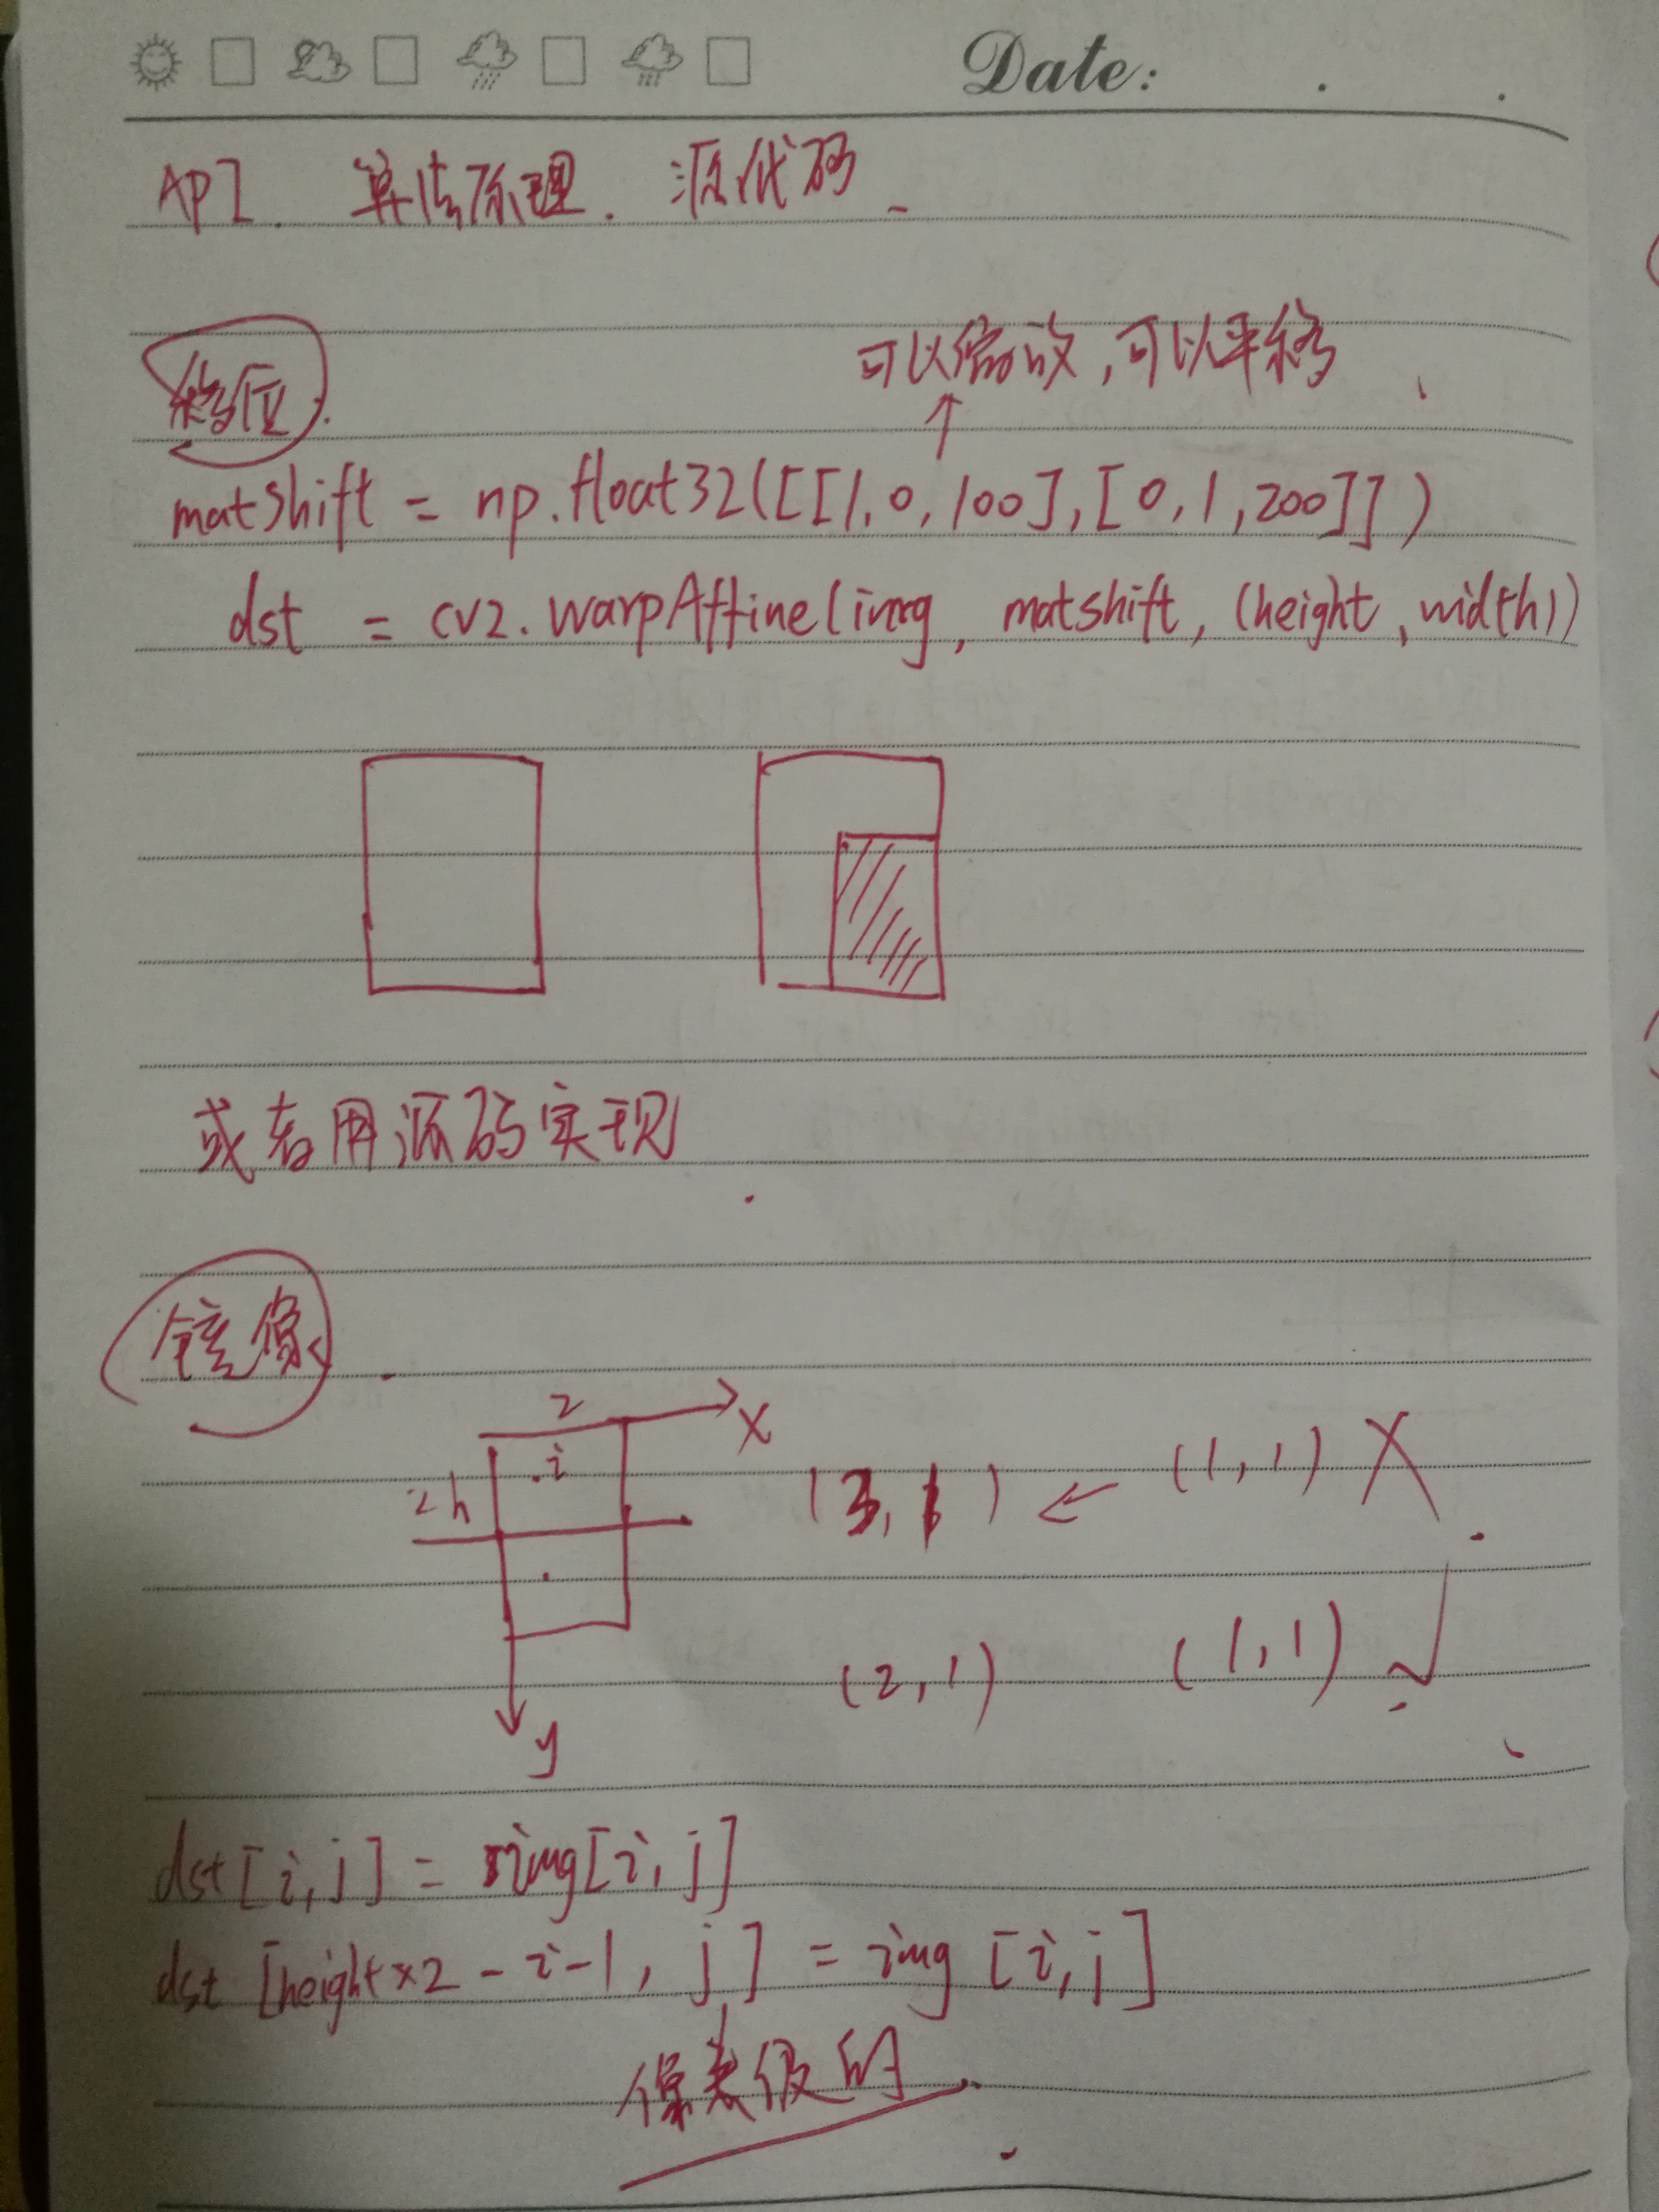 Date: . .
API. 算法原理. 源代码
移位.
可以缩放,可以平移
↑
matshift = np.float32([[1,0,100],[0,1,200]])
dst = cv2.warpAffine(img, matshift, (height, width))
或者用源码实现
镜像
2 X
i
2 h
(3,1) ← (1,1) X
(2,1) (1,1) √
y
dst[i,j] = img[i,j]
dst [height×2-i-1, j] = img [i,j]
像素级的